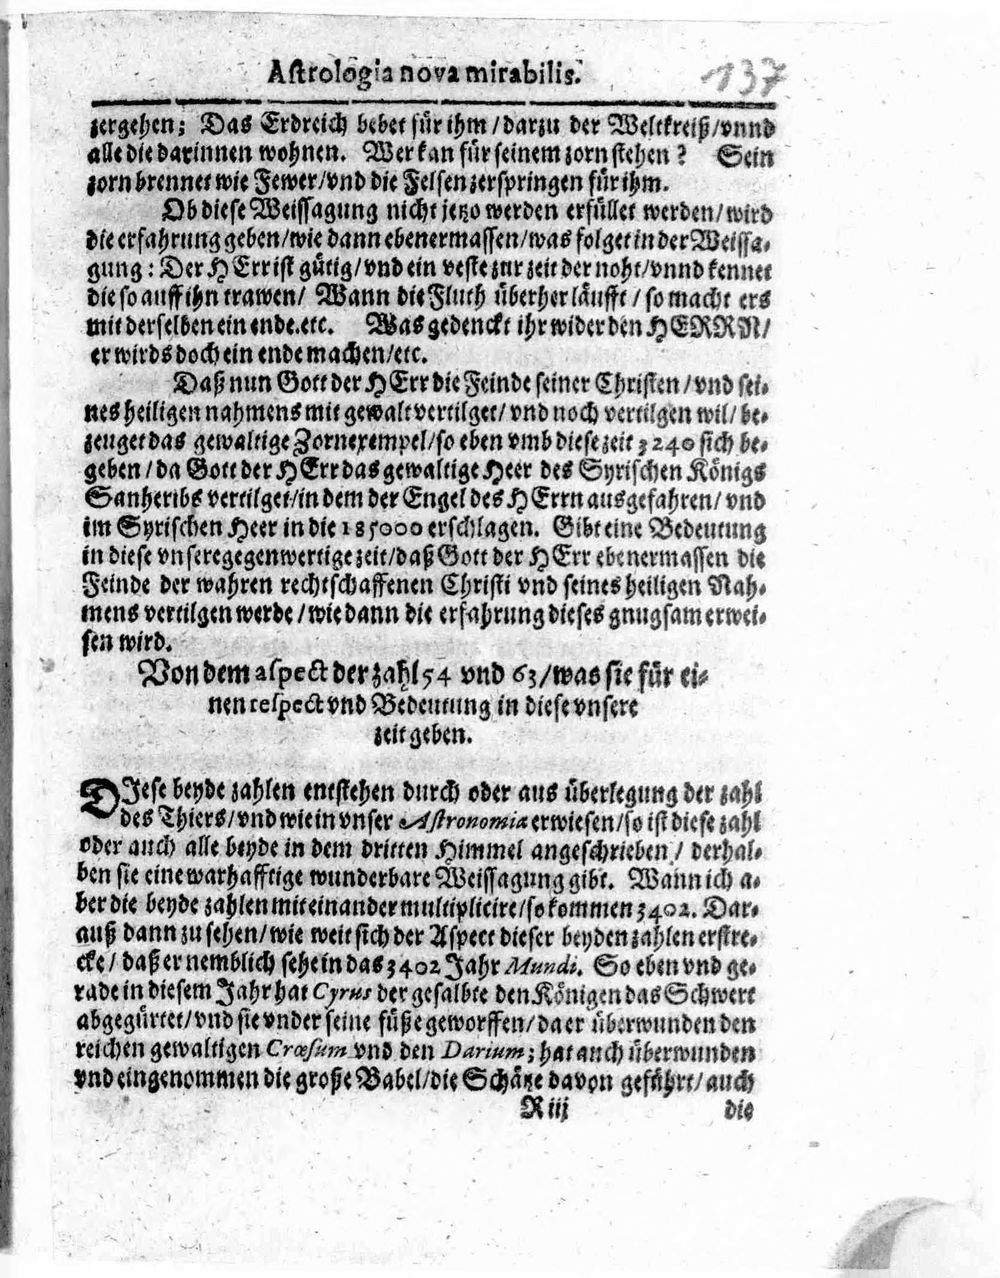 Astrologia nova mirabilis.
137
zergehen; Das Erdreich bebet für ihm/darzu der Weltkreiß/vnnd
alle die darinnen wohnen. Wer kan für seinem zorn stehen? Sein
zorn brennet wie Fewer/vnd die Felsen zerspringen für ihm.
Ob diese Weissagung nicht jetzo werden erfüllet werden/wird
die erfahrung geben/wie dann ebenermassen/was folget in der Weissa-
gung: Der HErr ist gütig/vnd ein veste zur zeit der noht/vnnd kennet
die so auff ihn trawen/ Wann die Fluth überher läufft/so macht ers
mit derselben ein ende.etc. Was gedenckt ihr wider den HERRN/
er wirds doch ein ende machen/etc.
Daß nun Gott der HErr die Feinde seiner Christen/vnd sei-
nes heiligen nahmens mit gewalt vertilget/vnd noch vertilgen wil/be-
zeuget das gewaltige Zornexempel/so eben vmb diese zeit 3240 sich be-
geben/da Gott der HErr das gewaltige Heer des Syrischen Königs
Sanheribs vertilget/in dem der Engel des HErrn ausgefahren/vnd
im Syrischen Heer in die 185000 erschlagen. Gibt eine Bedeutung
in diese vnsere gegenwertige zeit/daß Gott der HErr ebenermassen die
Feinde der wahren rechtschaffenen Christi vnd seines heiligen Nah-
mens vertilgen werde/wie dann die erfahrung dieses gnugsam erwei-
sen wird.
Von dem aspect der zahl 54 vnd 63/was sie für ei-
nen respect vnd Bedeutung in diese vnsere
zeit geben.
DJese beyde zahlen entstehen durch oder aus überlegung der zahl
des Thiers/vnd wie in vnser Astronomia erwiesen/so ist diese zahl
oder auch alle beyde in dem dritten Himmel angeschrieben/ derhal-
ben sie eine warhafftige wunderbare Weissagung gibt. Wann ich a-
ber die beyde zahlen mit einander multiplicire/so kommen 3402. Dar-
auß dann zu sehen/wie weit sich der Aspect dieser beyden zahlen erstre-
cke/daß er nemblich sehe in das 3402 Jahr Mundi. So eben vnd ge-
rade in diesem Jahr hat Cyrus der gesalbte den Königen das Schwert
abgegürtet/vnd sie vnder seine füße geworffen/da er überwunden den
reichen gewaltigen Crœsum vnd den Darium; hat auch überwunden
vnd eingenommen die große Babel/die Schätze davon geführt/auch
R iij die